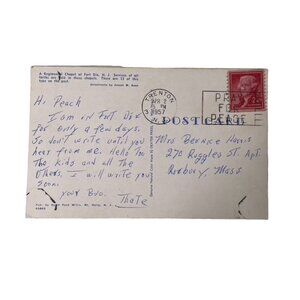 A Regimental Chapel at Fort Dix, N. J. Services of all
faiths are held in these chapels. There are 11 of this
type on the post.
Hi, Peach
I am in Fort Dix
for only a few days.
So don't write until you
hear from me. Hello to
the kids and all the
others. I will write you
soon.
your Bro.
TRENTON
APR 2
PM
1957
N.J.
PRAY
FOR
PEACE
POSTCARD
Mrs Bernice Harris
270 Ruggles St. Apt
Roxbury, Mass